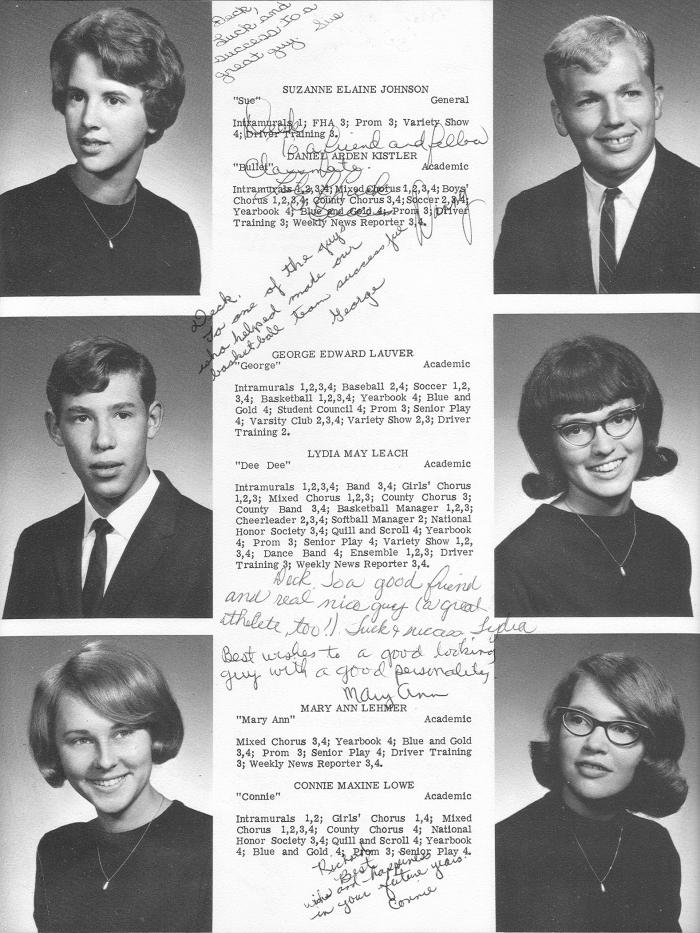 Deck,
Luck and
success to a
great guy. Sue
SUZANNE ELAINE JOHNSON
"Sue" General
Intramurals 1; FHA 3; Prom 3; Variety Show
4; Driver Training 3.
Deck
To a friend and fellow
DANIEL ARDEN KISTLER
"Bullet" Academic
Classmate.
Intramurals 1,2,3,4; Mixed Chorus 1,2,3,4; Boys'
Chorus 1,2,3,4; County Chorus 3,4; Soccer 2,3,4;
Yearbook 4; Blue and Gold 4; Prom 3; Driver
Training 3; Weekly News Reporter 3,4.
Danny
Deck,
To one of the guys
who helped made our
basketball team successful
George
GEORGE EDWARD LAUVER
"George" Academic
Intramurals 1,2,3,4; Baseball 2,4; Soccer 1,2,
3,4; Basketball 1,2,3,4; Yearbook 4; Blue and
Gold 4; Student Council 4; Prom 3; Senior Play
4; Varsity Club 2,3,4; Variety Show 2,3; Driver
Training 2.
LYDIA MAY LEACH
"Dee Dee" Academic
Intramurals 1,2,3,4; Band 3,4; Girls' Chorus
1,2,3; Mixed Chorus 1,2,3; County Chorus 3;
County Band 3,4; Basketball Manager 1,2,3;
Cheerleader 2,3,4; Softball Manager 2; National
Honor Society 3,4; Quill and Scroll 4; Yearbook
4; Prom 3; Senior Play 4; Variety Show 1,2,
3,4; Dance Band 4; Ensemble 1,2,3; Driver
Training 3; Weekly News Reporter 3,4.
Deck, To a good friend
and real nice guy (a great
athelete, too!). Luck & success, Lydia
Best wishes to a good looking
guy with a good personality.
Mary Ann
MARY ANN LEHMER
"Mary Ann" Academic
Mixed Chorus 3,4; Yearbook 4; Blue and Gold
3,4; Prom 3; Senior Play 4; Driver Training
3; Weekly News Reporter 3,4.
CONNIE MAXINE LOWE
"Connie" Academic
Intramurals 1,2; Girls' Chorus 1,4; Mixed
Chorus 1,2,3,4; County Chorus 4; National
Honor Society 3,4; Quill and Scroll 4; Yearbook
4; Blue and Gold 4; Prom 3; Senior Play 4.
Richard,
Best
wishes and happiness
in your future years.
Connie